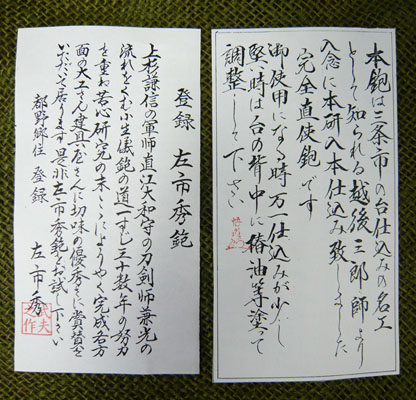 本鉋は三条市の台仕込みの名工
として知られる越後三郎師より
入念に本研入本仕込み致しました
完全直使鉋です
御使用になる時万一仕込みが少し
堅い時は台の背中に椿油等塗って
調整して下さい
登録 左市秀鉋
上杉謙信の軍師直江大和守の刀剣師兼光の
流れをくむ小生儀鉋の道一すじ三十数年の努力
を重ね苦心研究の末こゝにようやく完成各方
面の大工さん建具屋さんに切味の優秀さに賞賛を
いただいて居ります是非左市秀鉋をお試し下さい
都野郷住 登録 左市秀
武夫
之作